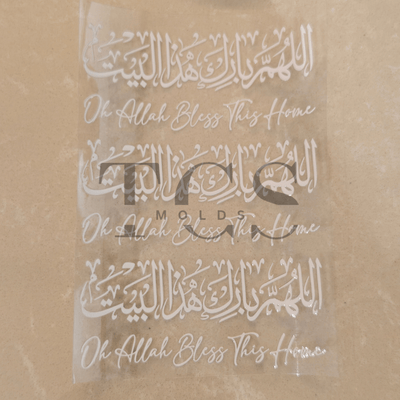 اللهم بارك هذا البيت
Oh Allah Bless This Home
اللهم بارك هذا البيت
TGS
MOLDS
Oh Allah Bless This Home
اللهم بارك هذا البيت
Oh Allah Bless This Home